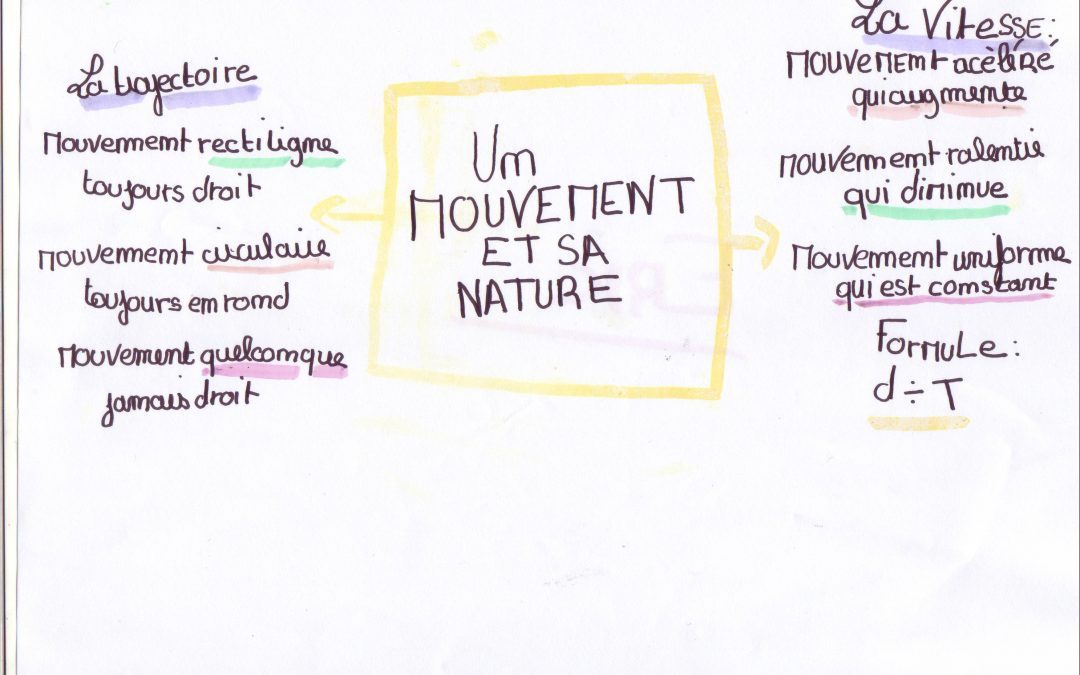 La trajectoire
Mouvement rectiligne
toujours droit
Mouvement circulaire
toujours en rond
Mouvement quelconque
jamais droit
Un
MOUVEMENT
ET SA
NATURE
La Vitesse:
Mouvement acéléré
qui augmente
Mouvement ralentie
qui diminue
Mouvement uniforme
qui est constant
Formule:
d ÷ T